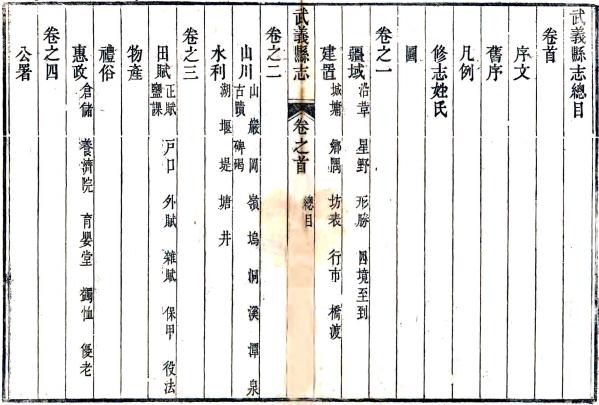 武義縣志總目
卷首
序文
舊序
凡例
修志姓氏
圖
卷之一
疆域 沿革 星野 形勝 四境至到
建置 城墉 鄉隅 坊表 行市 橋渡
武義縣志 卷之首 總目
卷之二
山川 山 巖 岡 嶺 塢 洞 溪 潭 泉 古蹟 碑碣
水利 湖 堰 堤 塘 井
卷之三
田賦 正賦 戶口 外賦 雜賦 保甲 役法 鹽課
物產
禮俗
惠政 倉儲 養濟院 育嬰堂 蠲恤 優老
卷之四
公署